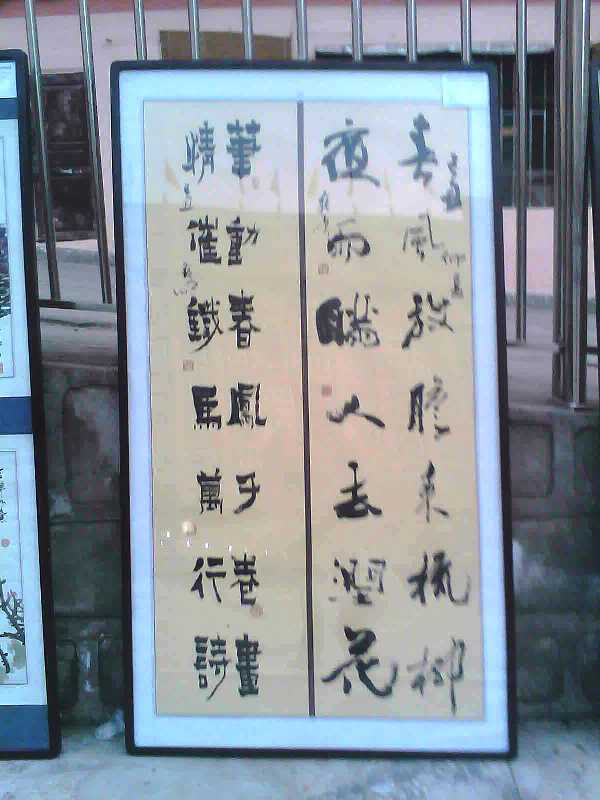 春風放膽來梳柳
夜雨瞞人去潤花
筆動春風千卷畫
情催鐵馬萬行詩